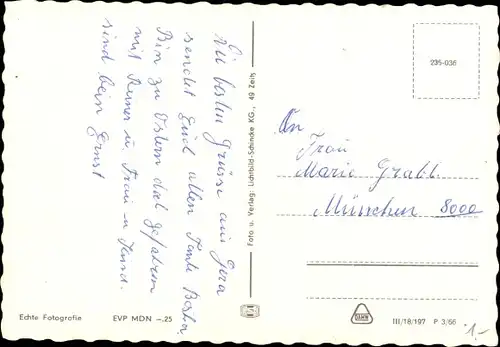 Die besten Grüsse aus Gera
sendet Euch allen Tante Bertha,
Bin zu Ostern dort gefahren
mit Reiner u. Frau u. Kind.
sind beim Ernst
Foto u. Verlag: Lichtbild-Schincke KG., 49 Zeitz
235-036
An
Frau
Maria Grabl.
München 8000
Echte Fotografie EVP MDN -.25
III/18/197 P 3/66
1,-